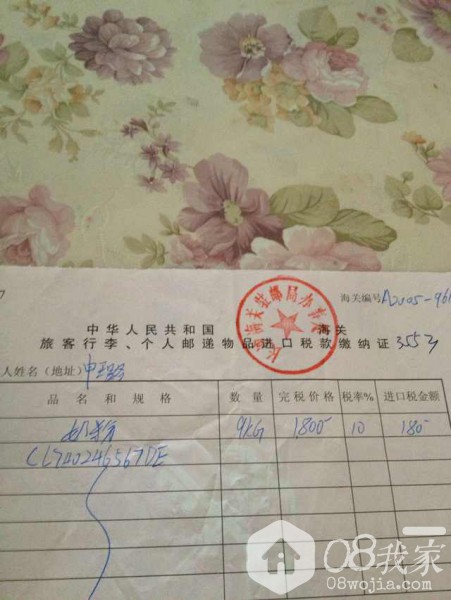 7
海关编号A2005-961
中华人民共和国 海关
旅客行李、个人邮递物品进口税款缴纳证 3553
人姓名（地址）
品名和规格 数量 完税价格 税率% 进口税金额
9KG 1800 10 180
CL740246567DE
08我家
08wojia.com